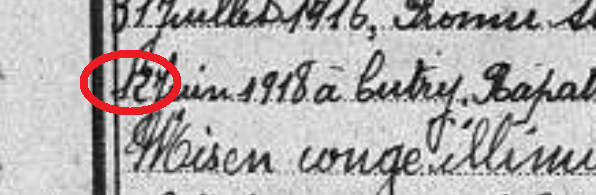 31 Juillet 1916, Promu
12 Juin 1918 à Cutry. Rapat
Mis en congé illimi